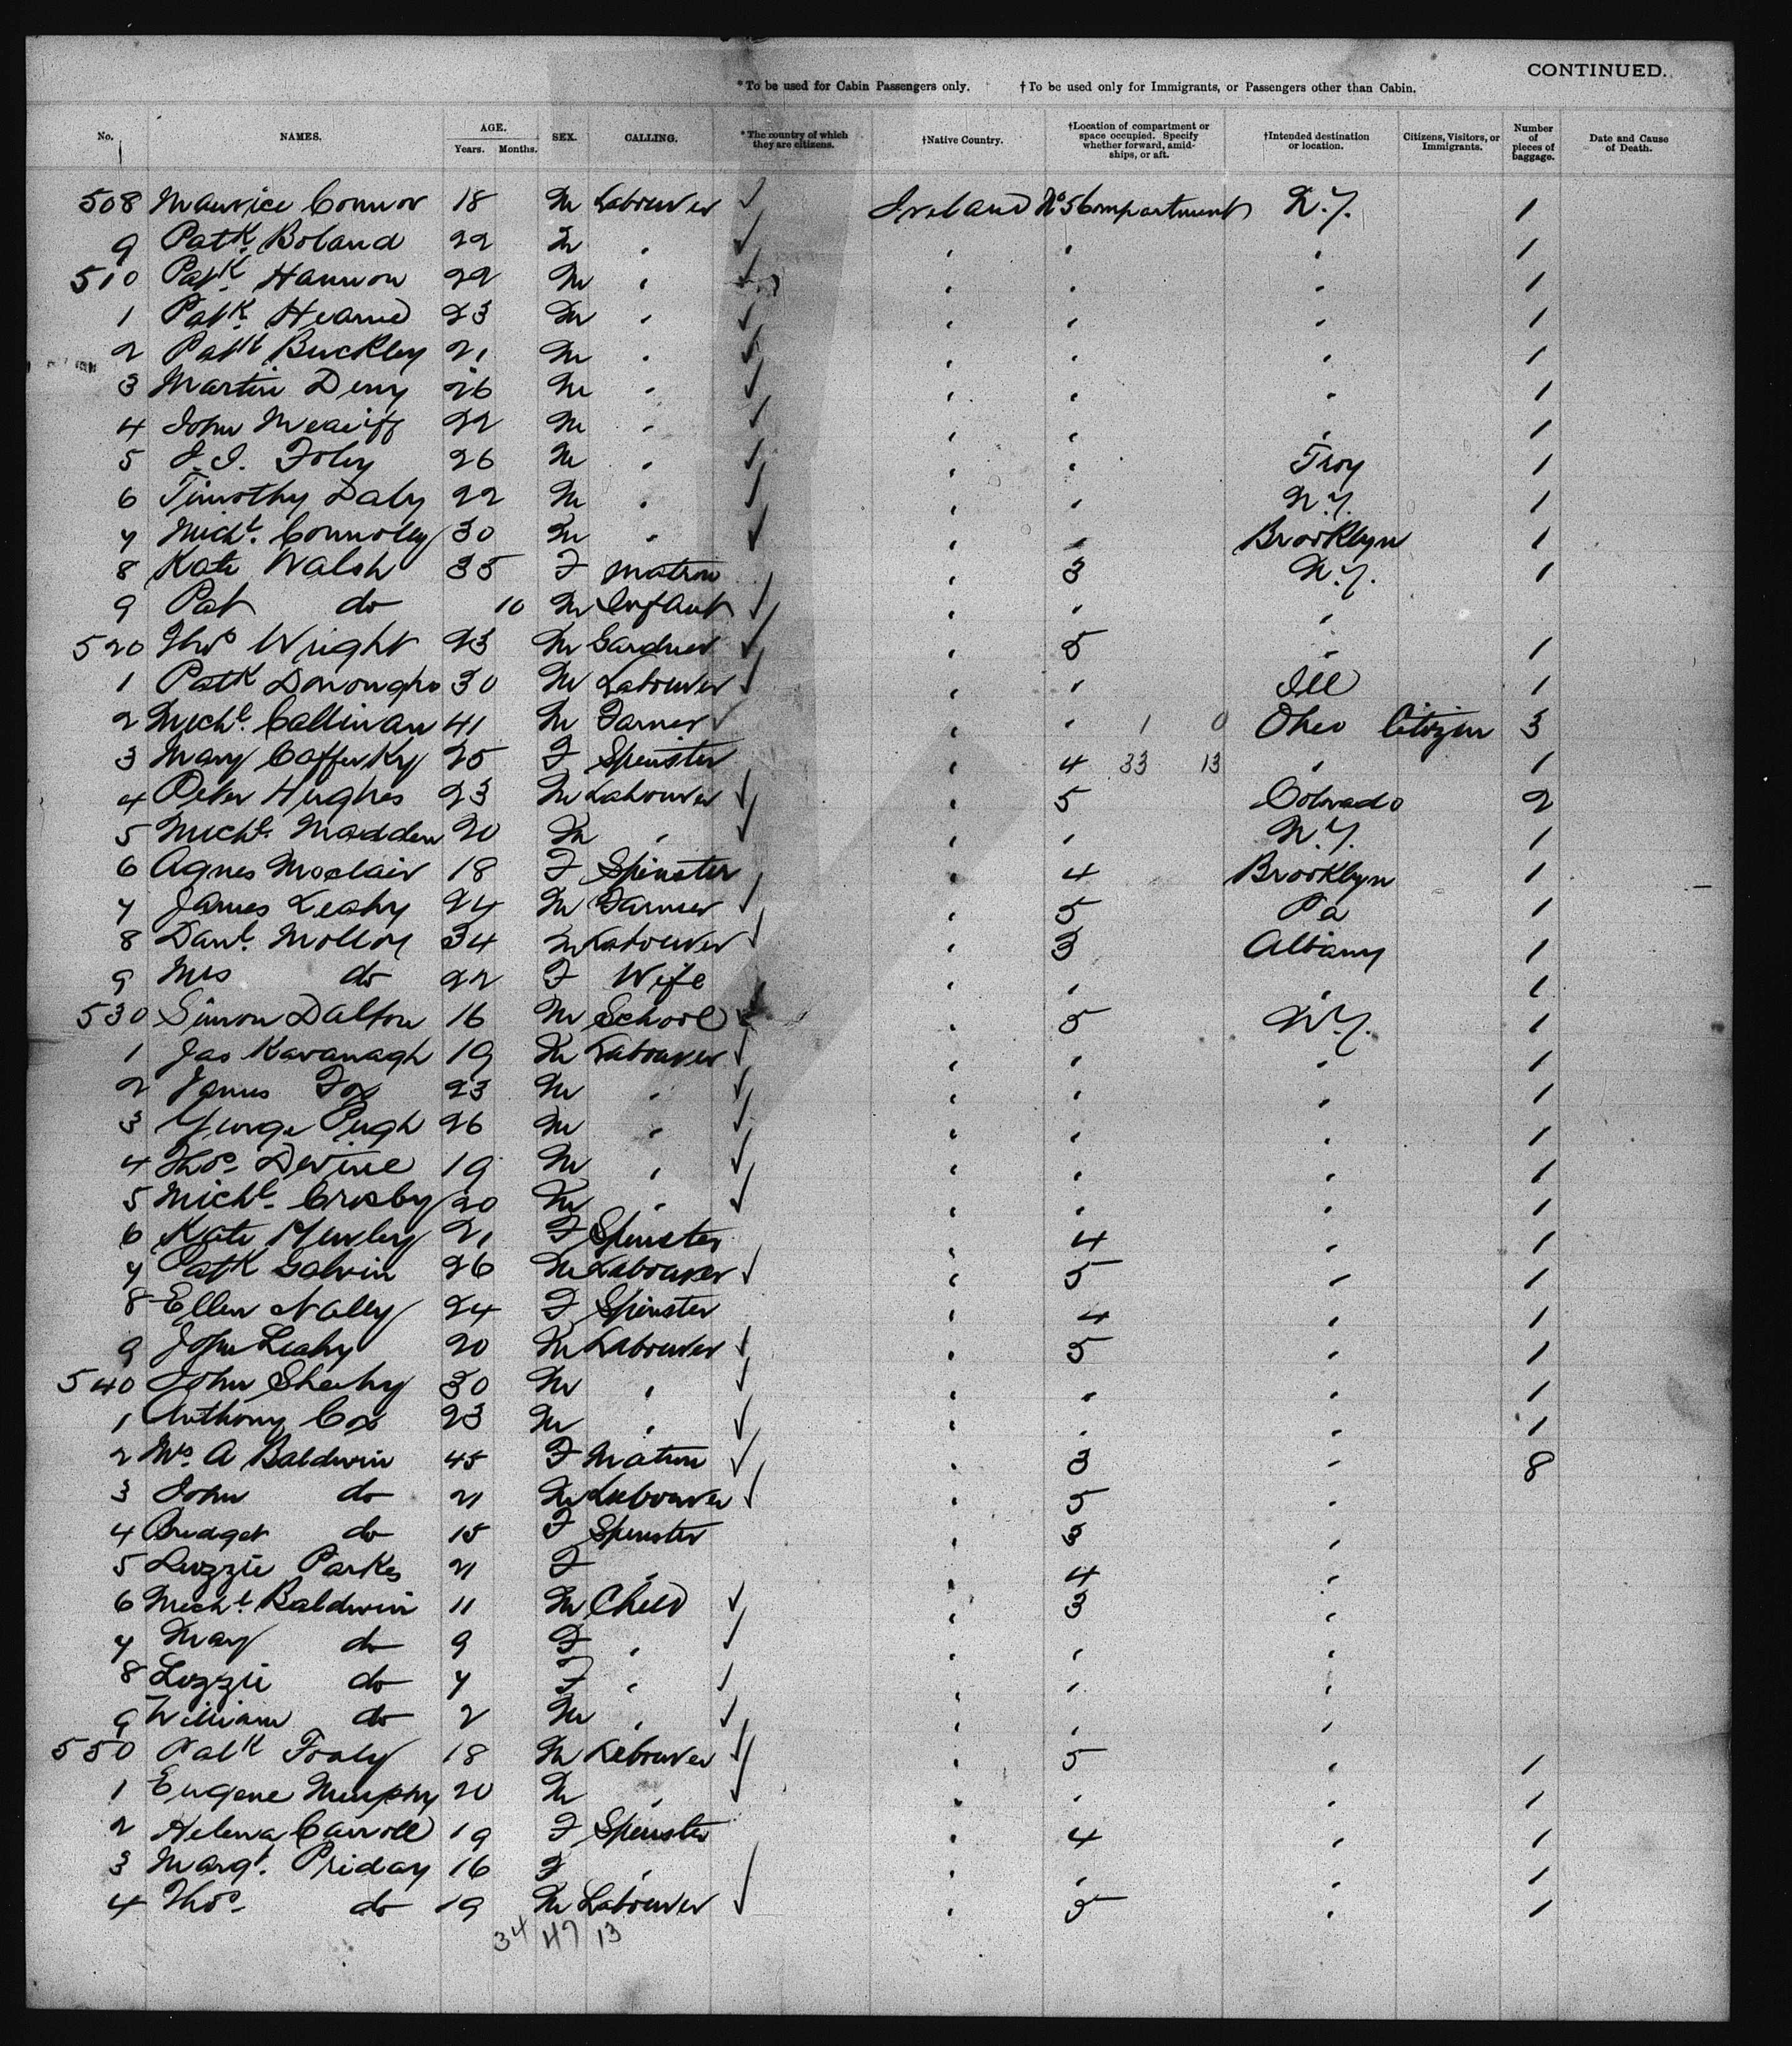 CONTINUED.
*To be used for Cabin Passengers only. †To be used only for Immigrants, or Passengers other than Cabin.
No. NAMES. AGE. Years. Months. SEX. CALLING. *The country of which they are citizens. †Native Country. †Location of compartment or space occupied. Specify whether forward, amidships, or aft. †Intended destination or location. Citizens, Visitors, or Immigrants. Number of pieces of baggage. Date and Cause of Death.
508 Maurice Connor 18 M Labourer ✓ Ireland No 5 Compartment N.Y. 1
9 Patk. Boland 22 M " ✓ " " " 1
510 Patk. Hannon 22 M " ✓ " " " 1
1 Patk. Hearne 23 M " ✓ " " " 1
2 Patk Buckley 21 M " ✓ " " " 1
3 Martin Deny 26 M " ✓ " " " 1
4 John 22 M " ✓ " " " 1
5 J.J. Foley 26 M " ✓ " " Troy 1
6 Timothy Daly 22 M " ✓ " " N.Y. 1
7 Michl. Connolly 30 M " ✓ " " Brooklyn 1
8 Kate Walsh 35 F Matron " 3 N.Y. 1
9 Pat do 10 M Infant ✓ " " "
520 Thos Wright 23 M Gardner ✓ " 5 " 1
1 Patk Donougho 30 M Labourer ✓ " " Ill 1
2 Michl. Callinan 41 M Farmer ✓ " " 1 0 Ohio Citizen 3
3 Mary Cafferky 25 F Spinster " 4 33 13 " 1
4 Peter Hughes 23 M Labourer ✓ " 5 Colorado 2
5 Michl. Madden 20 M " ✓ " " N.Y. 1
6 Agnes Moclair 18 F Spinster " 4 Brooklyn 1
7 James Leahy 24 M Farmer ✓ " 5 Pa 1
8 Danl. Molloy 34 M Labourer ✓ " 3 Albany 1
9 Mrs do 22 F Wife " " " 1
530 Simon Dalton 16 M School ✓ " 5 N.Y. 1
1 Jas Kavanagh 19 M Labourer ✓ " " " 1
2 James Fox 23 M " ✓ " " " 1
3 George Pugh 26 M " ✓ " " " 1
4 Thos. Devine 19 M " ✓ " " " 1
5 Michl. Crosby 20 M " ✓ " " " 1
6 Kate 21 F Spinster " 4 " 1
7 Patk Galvin 26 M Labourer ✓ " 5 " 1
8 Ellen Nally 24 F Spinster " 4 " 1
9 John Leahy 20 M Labourer ✓ " 5 " 1
540 John Sheehy 30 M " ✓ " " " 1
1 Anthony Cox 23 M " ✓ " " " 1
2 Mrs. A Baldwin 45 F Matron ✓ " 3 " 8
3 John do 21 M Labourer ✓ " 5 "
4 Bridget do 15 F Spinster " 3 "
5 Lizzie Parkes 21 F " " 4 "
6 Michl. Baldwin 11 M Child ✓ " 3 "
7 Mary do 9 F " ✓ " " "
8 Lizzie do 7 F " ✓ " " "
9 William do 2 M " ✓ " " "
550 Patk 18 M Labourer ✓ " 5 " 1
1 Eugene Murphy 20 M " ✓ " " " 1
2 Helena Carroll 19 F Spinster " 4 " 1
3 Margt. Priday 16 F " " " " 1
4 Thos. do 19 M Labourer ✓ " 5 " 1
34 47 13